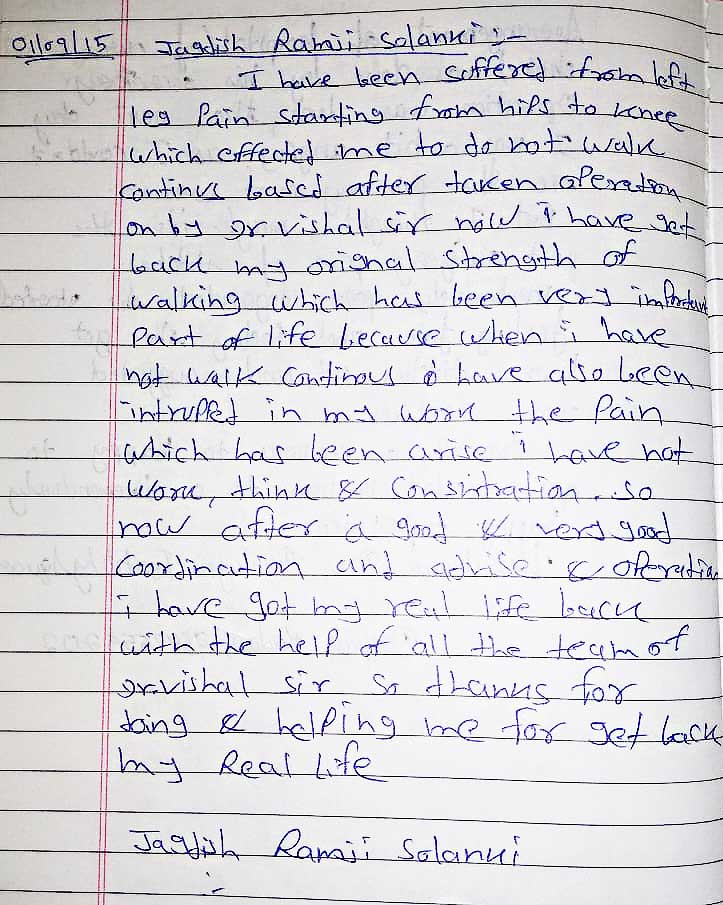 01/09/15 Jagdish Ramji Solanki :-
I have been suffered from left
leg Pain starting from hips to knee
which effected me to do not walk
continus based after taken operation
on by Dr. vishal sir now i have get
back my orignal strength of
walking which has been very important
Part of life because when i have
not walk continous i have also been
intrupted in my work the Pain
which has been arise i have not
work, think & Consintration. so
now after a good & very good
Coordination and advise & operation
i have got my real life back
with the help of all the team of
Dr. vishal sir so thanks for
doing & helping me for get back
my Real Life
Jagdish Ramji Solanki